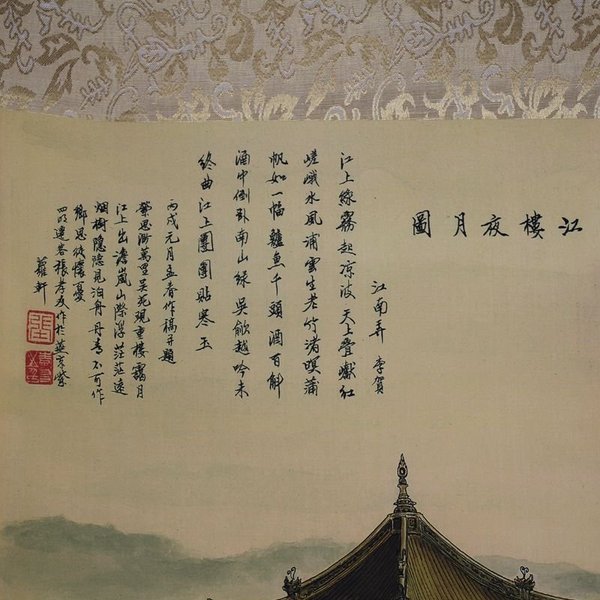 江樓夜月圖
江南弄 李賀
江上綠霧起涼波天上疊巘紅
嵯峨水風浦雲生老竹渚暝蒲
帆如一幅鱸魚千頭酒百斛
酒中倒臥南山綠吳歈越吟未
終曲江上團團貼寒玉
丙戌元月孟春作稿并題
思 萬里吳苑觀重樓靄月
江上出澹嵐山際浮茫茫遠
烟樹隱隱見泊舟丹青不可作
鄉思從 憂
四明 張孝友作於燕京紫
蘿軒